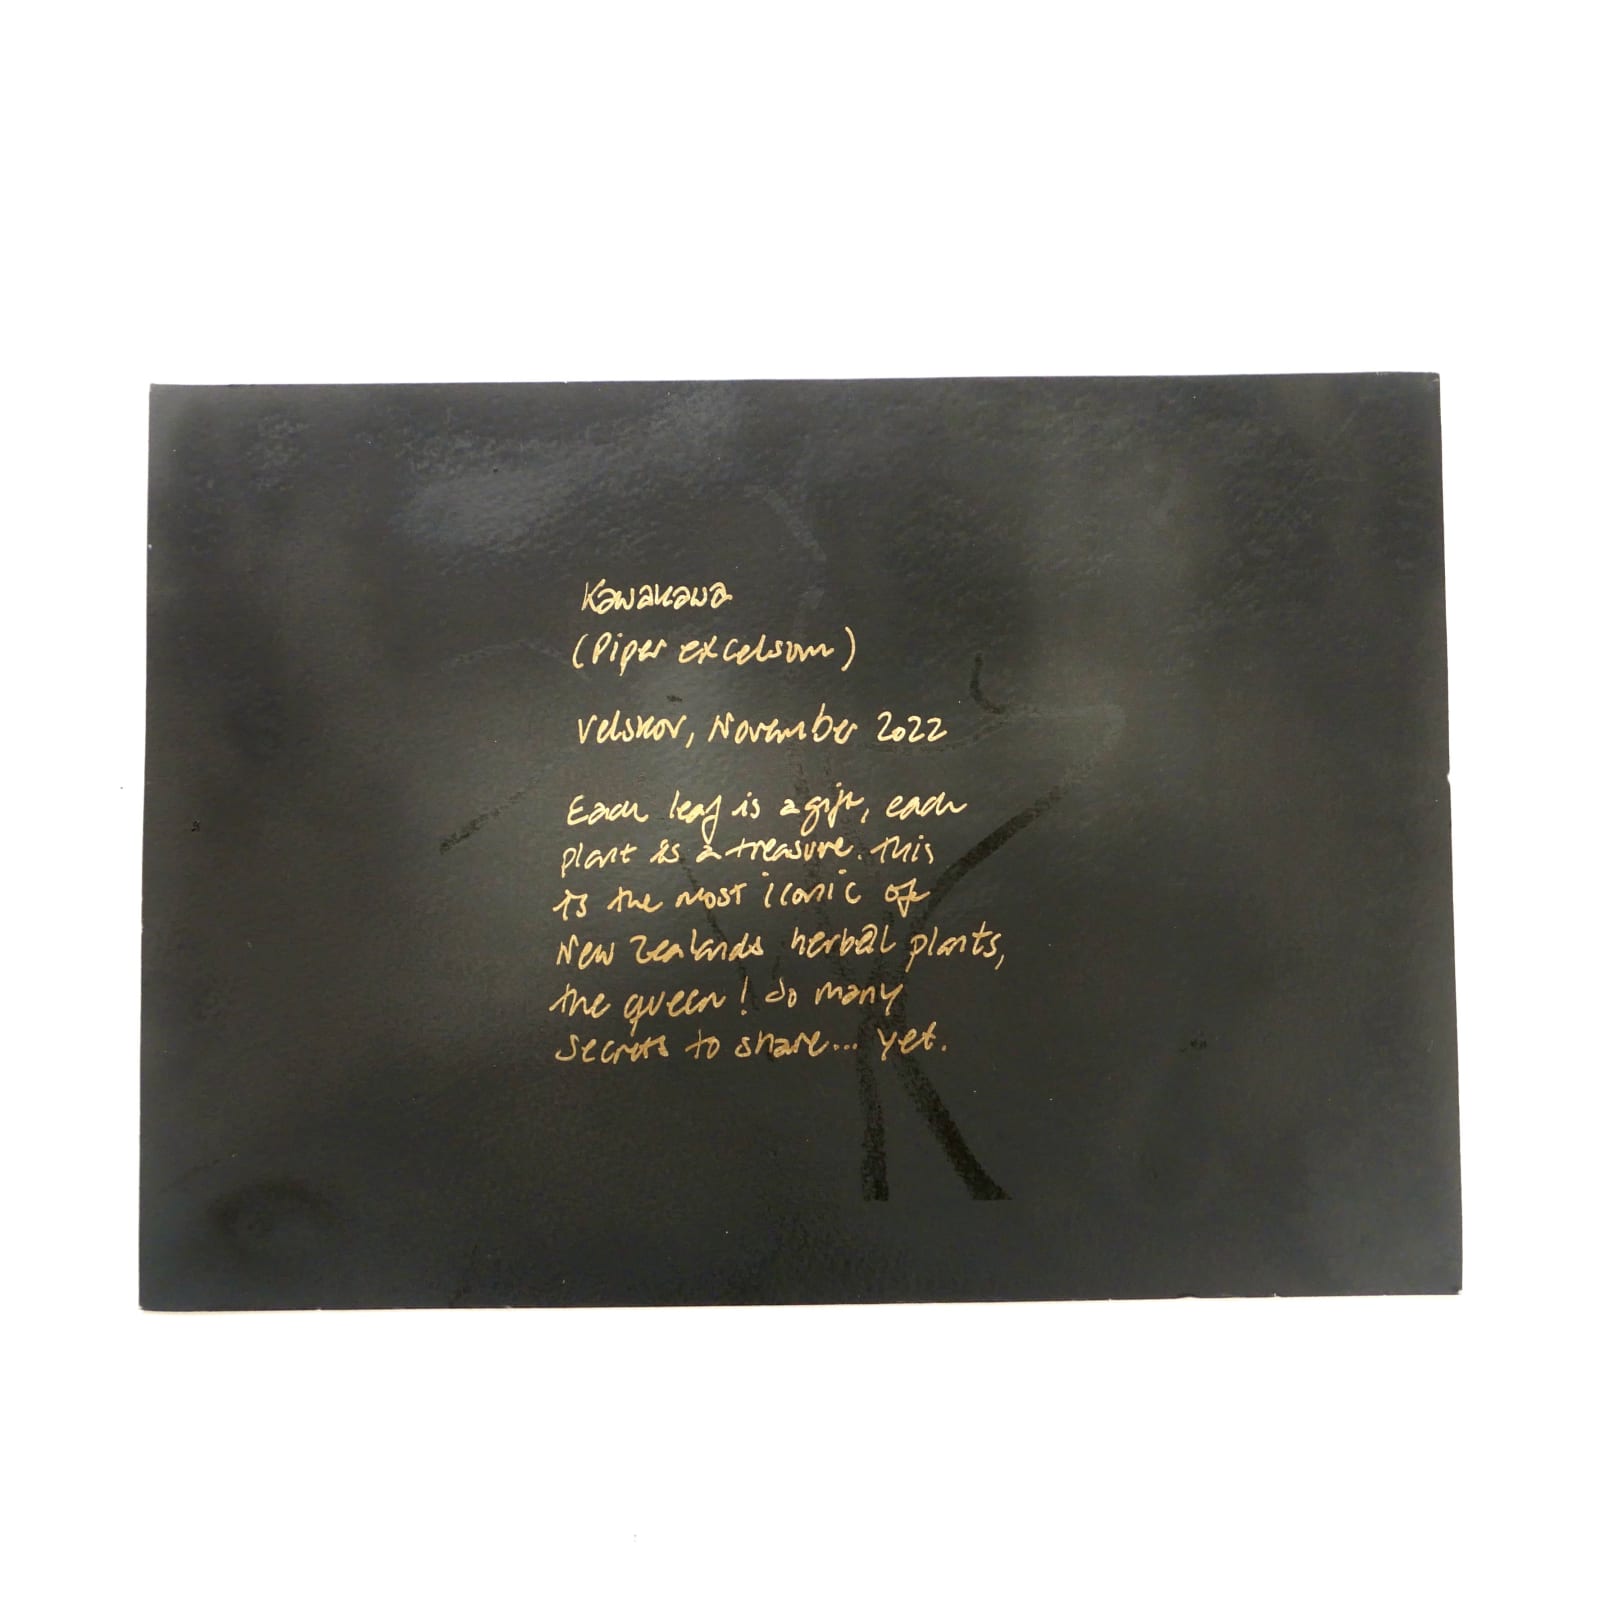 Kawakawa
(Piper excelsum)
Velskov, November 2022
Each leaf is a gift, each
plant is a treasure. This
is the most iconic of
New Zealands herbal plants,
the queen! So many
secrets to share... yet.